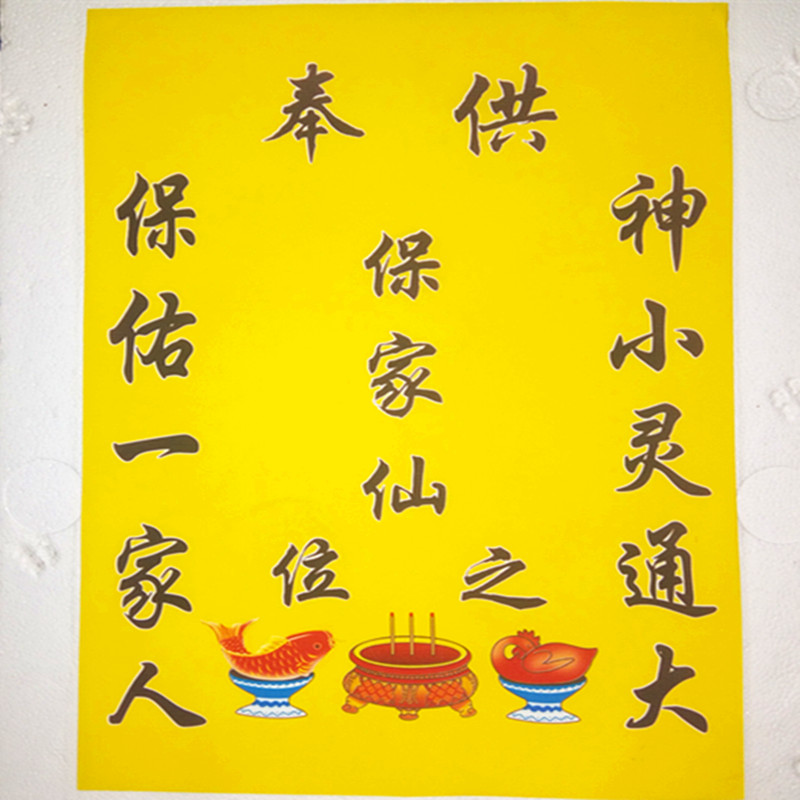 供奉
神小灵通大
保家仙
之位
保佑一家人